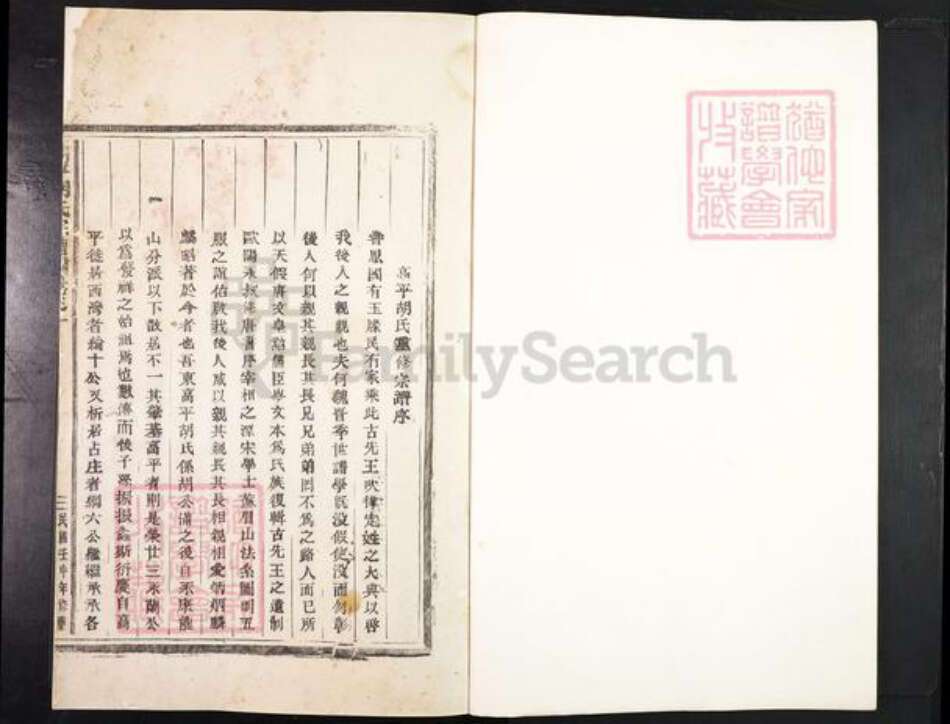 高平胡氏重修宗譜序
昔風國有玉牒民有家乘此古先王吹律定姓之大典以啓
我後人之親親也夫何魏晉季世譜學旣沒假使沒而勿彰
後人何以親其親長其長兄兄弟弟罔不爲之路人而已所
以天假唐文皐詔儒臣岑文本爲氏族復輯古先王之遺制
歐陽永叔脩唐譜序宰相之源宋學士蘇眉山法系圖明五
服之誼佑啟我後人咸以親其親長其長相親相愛炳炳麟
麟昭著於今者也吾東高平胡氏係胡公滿之後自永康龍
山分派以下散居不一其肇基高平者則是榮廿三承蘭公
以爲發祥之始祖焉也數傳而後子孫振振螽斯衍慶自高
平徙居西灣者綸十公又析居占庄者綱六公繼繼承承各
胡氏宗譜
民國壬申年修
譜學會
收藏
FamilySearch